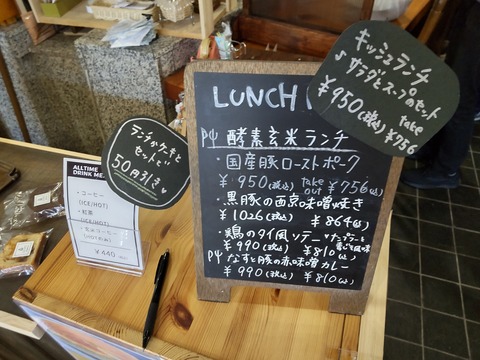 キッシュランチ
♪サラダとスープのセット
¥950(税込) take ¥756
LUNCH
酵素玄米ランチ
・国産豚ローストポーク
¥950(税込) take out ¥756(込)
・黒豚の西京味噌焼き
¥1026(税込) ¥864(込)
・鶏のタイ風ソテー
¥990(税込) ¥810(込)
なすと豚の赤味噌カレー
¥990(税込) ¥810(込)
ランチがケーキと
セットで
50円引き♥
ALLTIME
DRINK ME
・コーヒー
(ICE/HOT)
・紅茶
(ICE/HOT)
・玄米コーヒー
(HOTのみ)
¥440